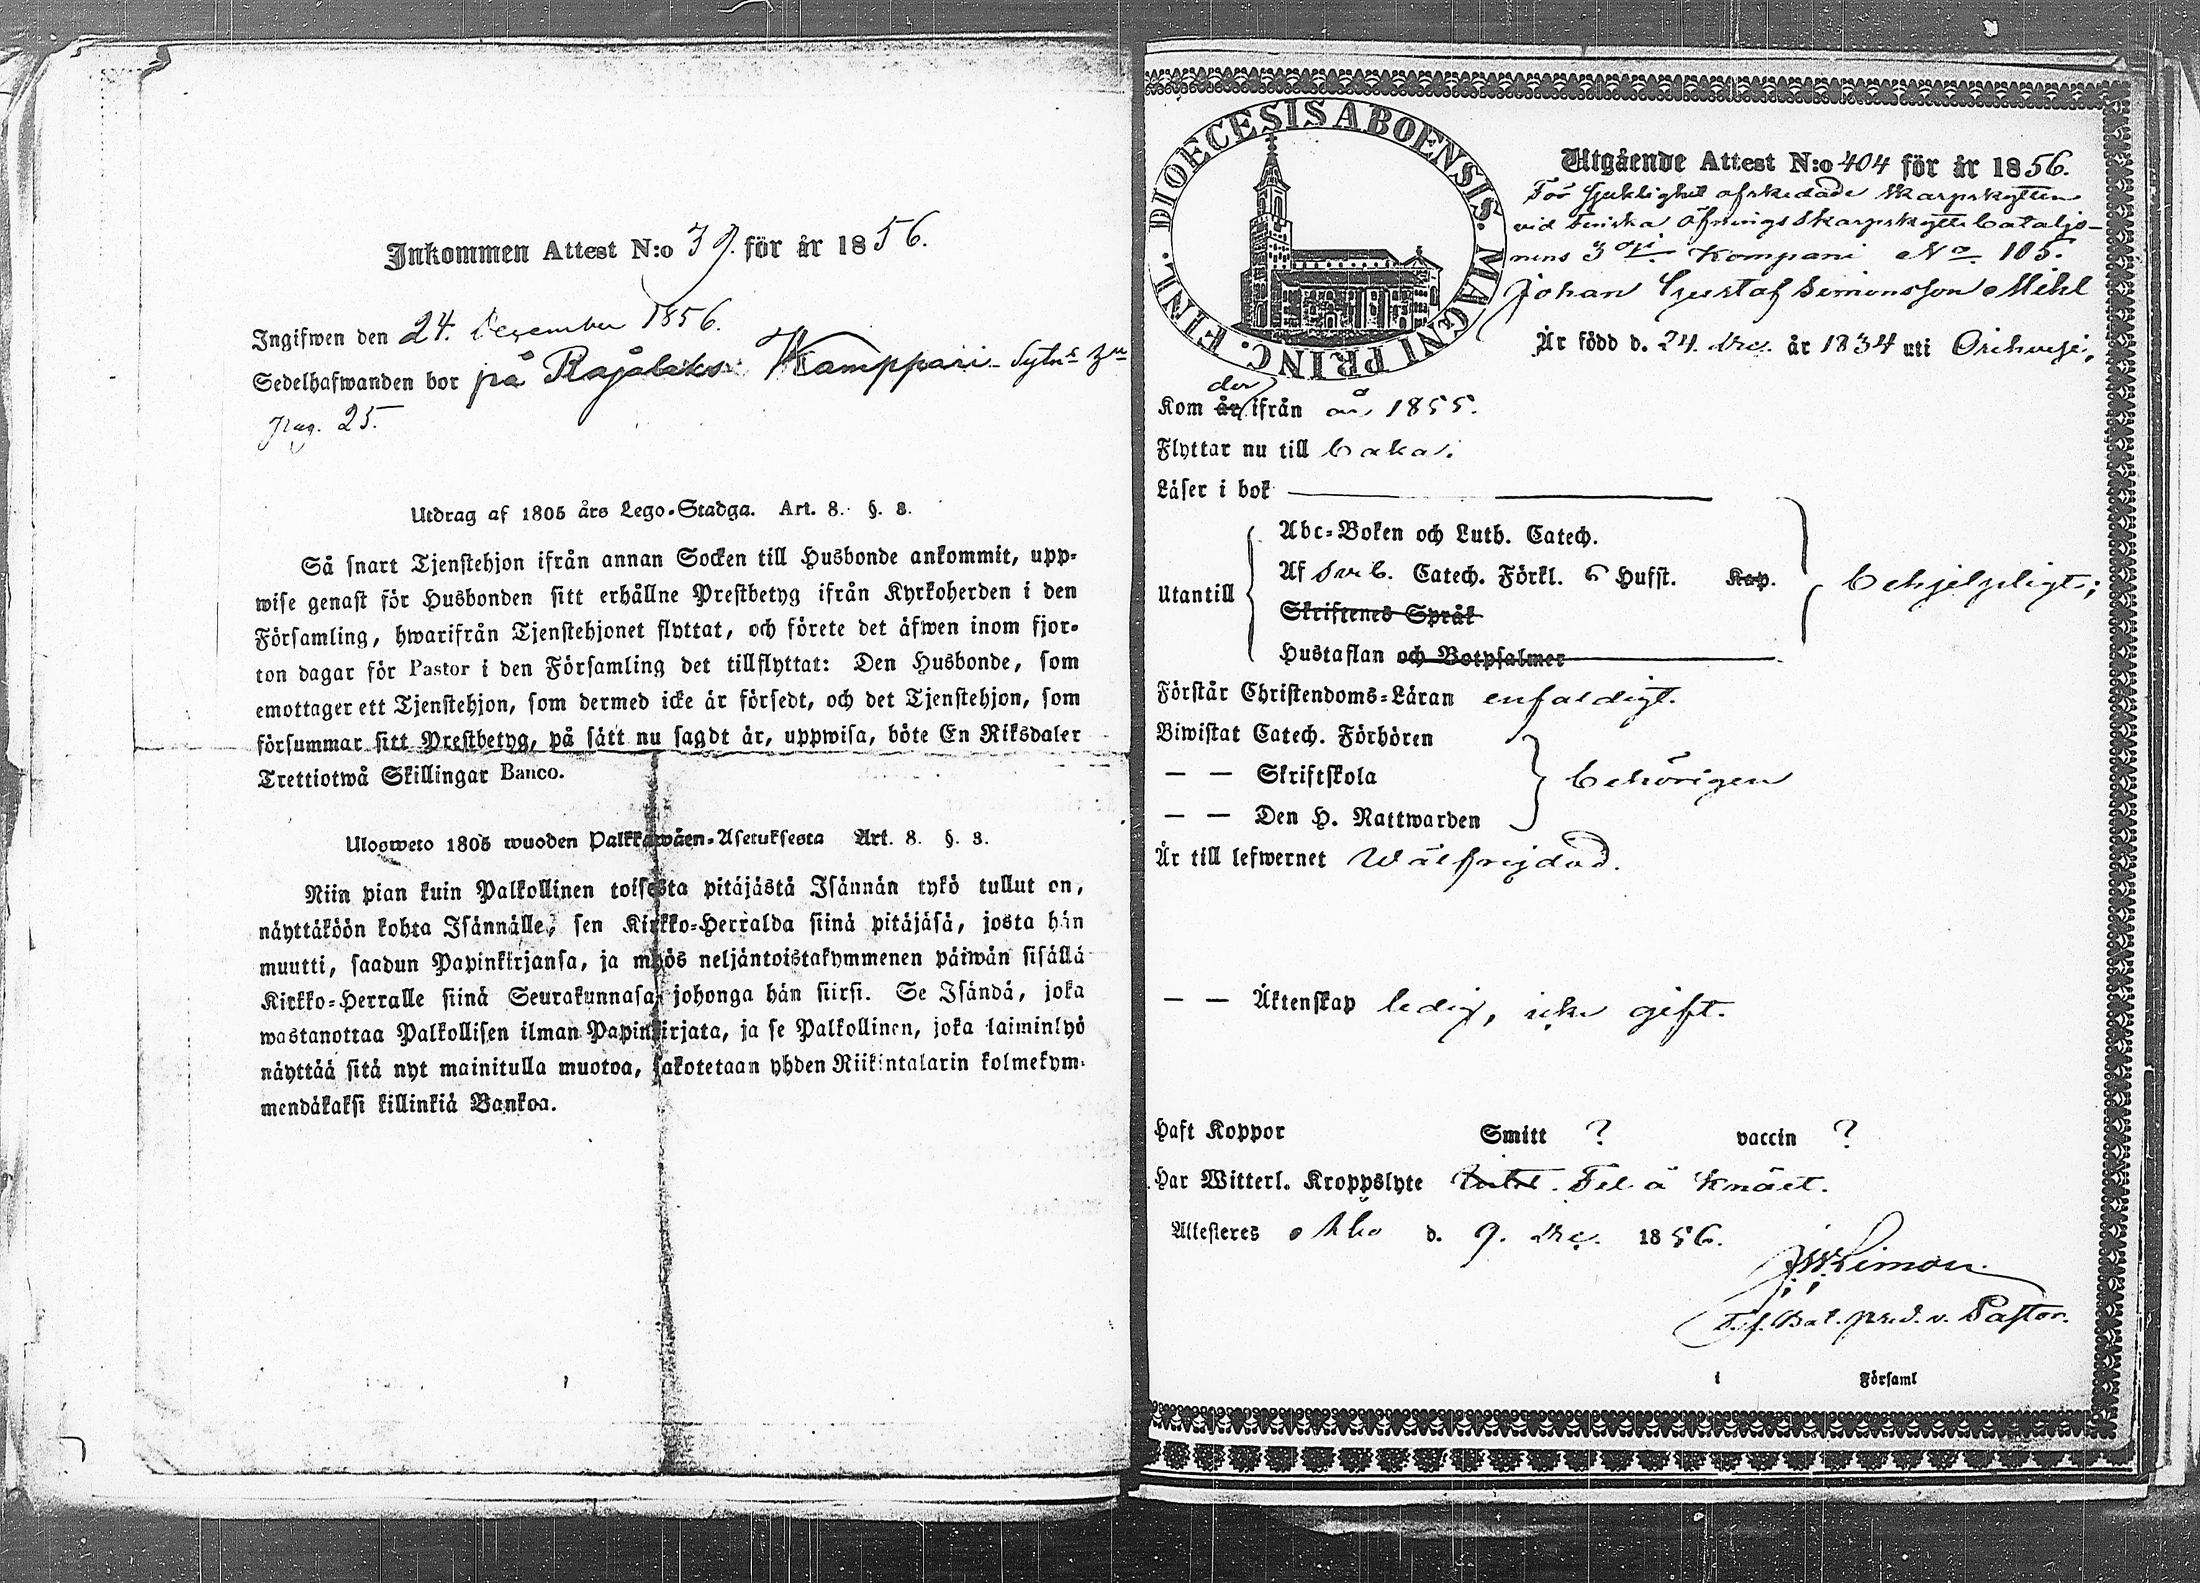 Inkommen Attest N:o 39. för år 1856.
Ingifwen den 24. December 1856.
Sedelhafwanden bor på Kamppari
pag. 25.
Utdrag af 1805 års Lego-Stadga. Art. 8. §. 3.
Så snart Tjenstehjon ifrån annan Socken till Husbonde ankommit, upp-
wise genast för Husbonden sitt erhållne Prestbetyg ifrån Kyrkoherden i den
Församling, hwarifrån Tjenstehjonet flyttat, och förete det äfwen inom fjor-
ton dagar för Pastor i den Församling det tillflyttat: Den Husbonde, som
emottager ett Tjenstehjon, som dermed icke är försedt, och det Tjenstehjon, som
försummar sitt Prestbetyg, på sätt nu sagdt är, uppwisa, böte En Riksdaler
Trettiotwå Skillingar Banco.
Ulosweto 1805 wuoden Palkkawäen-Asetuksesta Art. 8. §. 3.
Niin pian kuin Palkollinen toisesta pitäjästä Isännän tykö tullut on,
näyttäköön kohta Isännälle, sen Kirkko-Herralda siinä pitäjäsä, josta hän
muutti, saadun Papinkirjansa, ja myös neljäntoistakymmenen päiwän sisällä
Kirkko-Herralle siinä Seurakunnasa, johonga hän siirsi. Se Isändä, joka
wastanottaa Palkollisen ilman Papinkirjata, ja se Palkollinen, joka laiminlyö
näyttää sitä nyt mainitulla muotoa, sakotetaan yhden Riikintalarin kolmekym-
mendäkaksi killinkiä Bankoa.
DIOECESIS ABOENSIS. MAGNI PRINC. FINL.
Utgående Attest N:o 404 för år 1856.
För sjuklighet afskedade Skarpskytten
vid Finska Öfnings Skarpskytte bataljo-
nens 3 dje Kompani No 105.
Johan Gustaf Simonsson Mihl
Är född d. 24. Dec. år 1834 uti Orihvesi,
Kom år der ifrån år 1855.
Flyttar nu till
Läser i bok
Abc-Boken och Luth. Catech.
Af Sveb. Catech. Förkl. 6 Hufst. Kap.
Utantill
behjelpligt;
Skriftenes Språk
Hustaflan och Botpsalmer
Förstår Christendoms-Läran enfaldigt.
Biwistat Catech. Förhören
— — Skriftskola
behörigen
— — Den H. Nattwarden
Är till lefwernet Wälfrejdad.
— — Äktenskap ledig, icke gift.
Haft Koppor Smitt ? vaccin ?
Har Witterl. Kroppslyte Fel å knäet.
Attesteres Åbo d. 9. Dec. 1856.
Simon
T.f. Bat. pred. v. Pastor.
i Församl